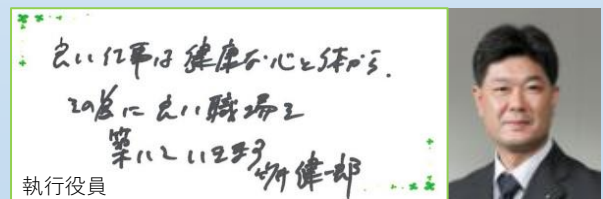 良い仕事は健康な心と体から。
その為に良い職場を
築いています
健一郎
執行役員